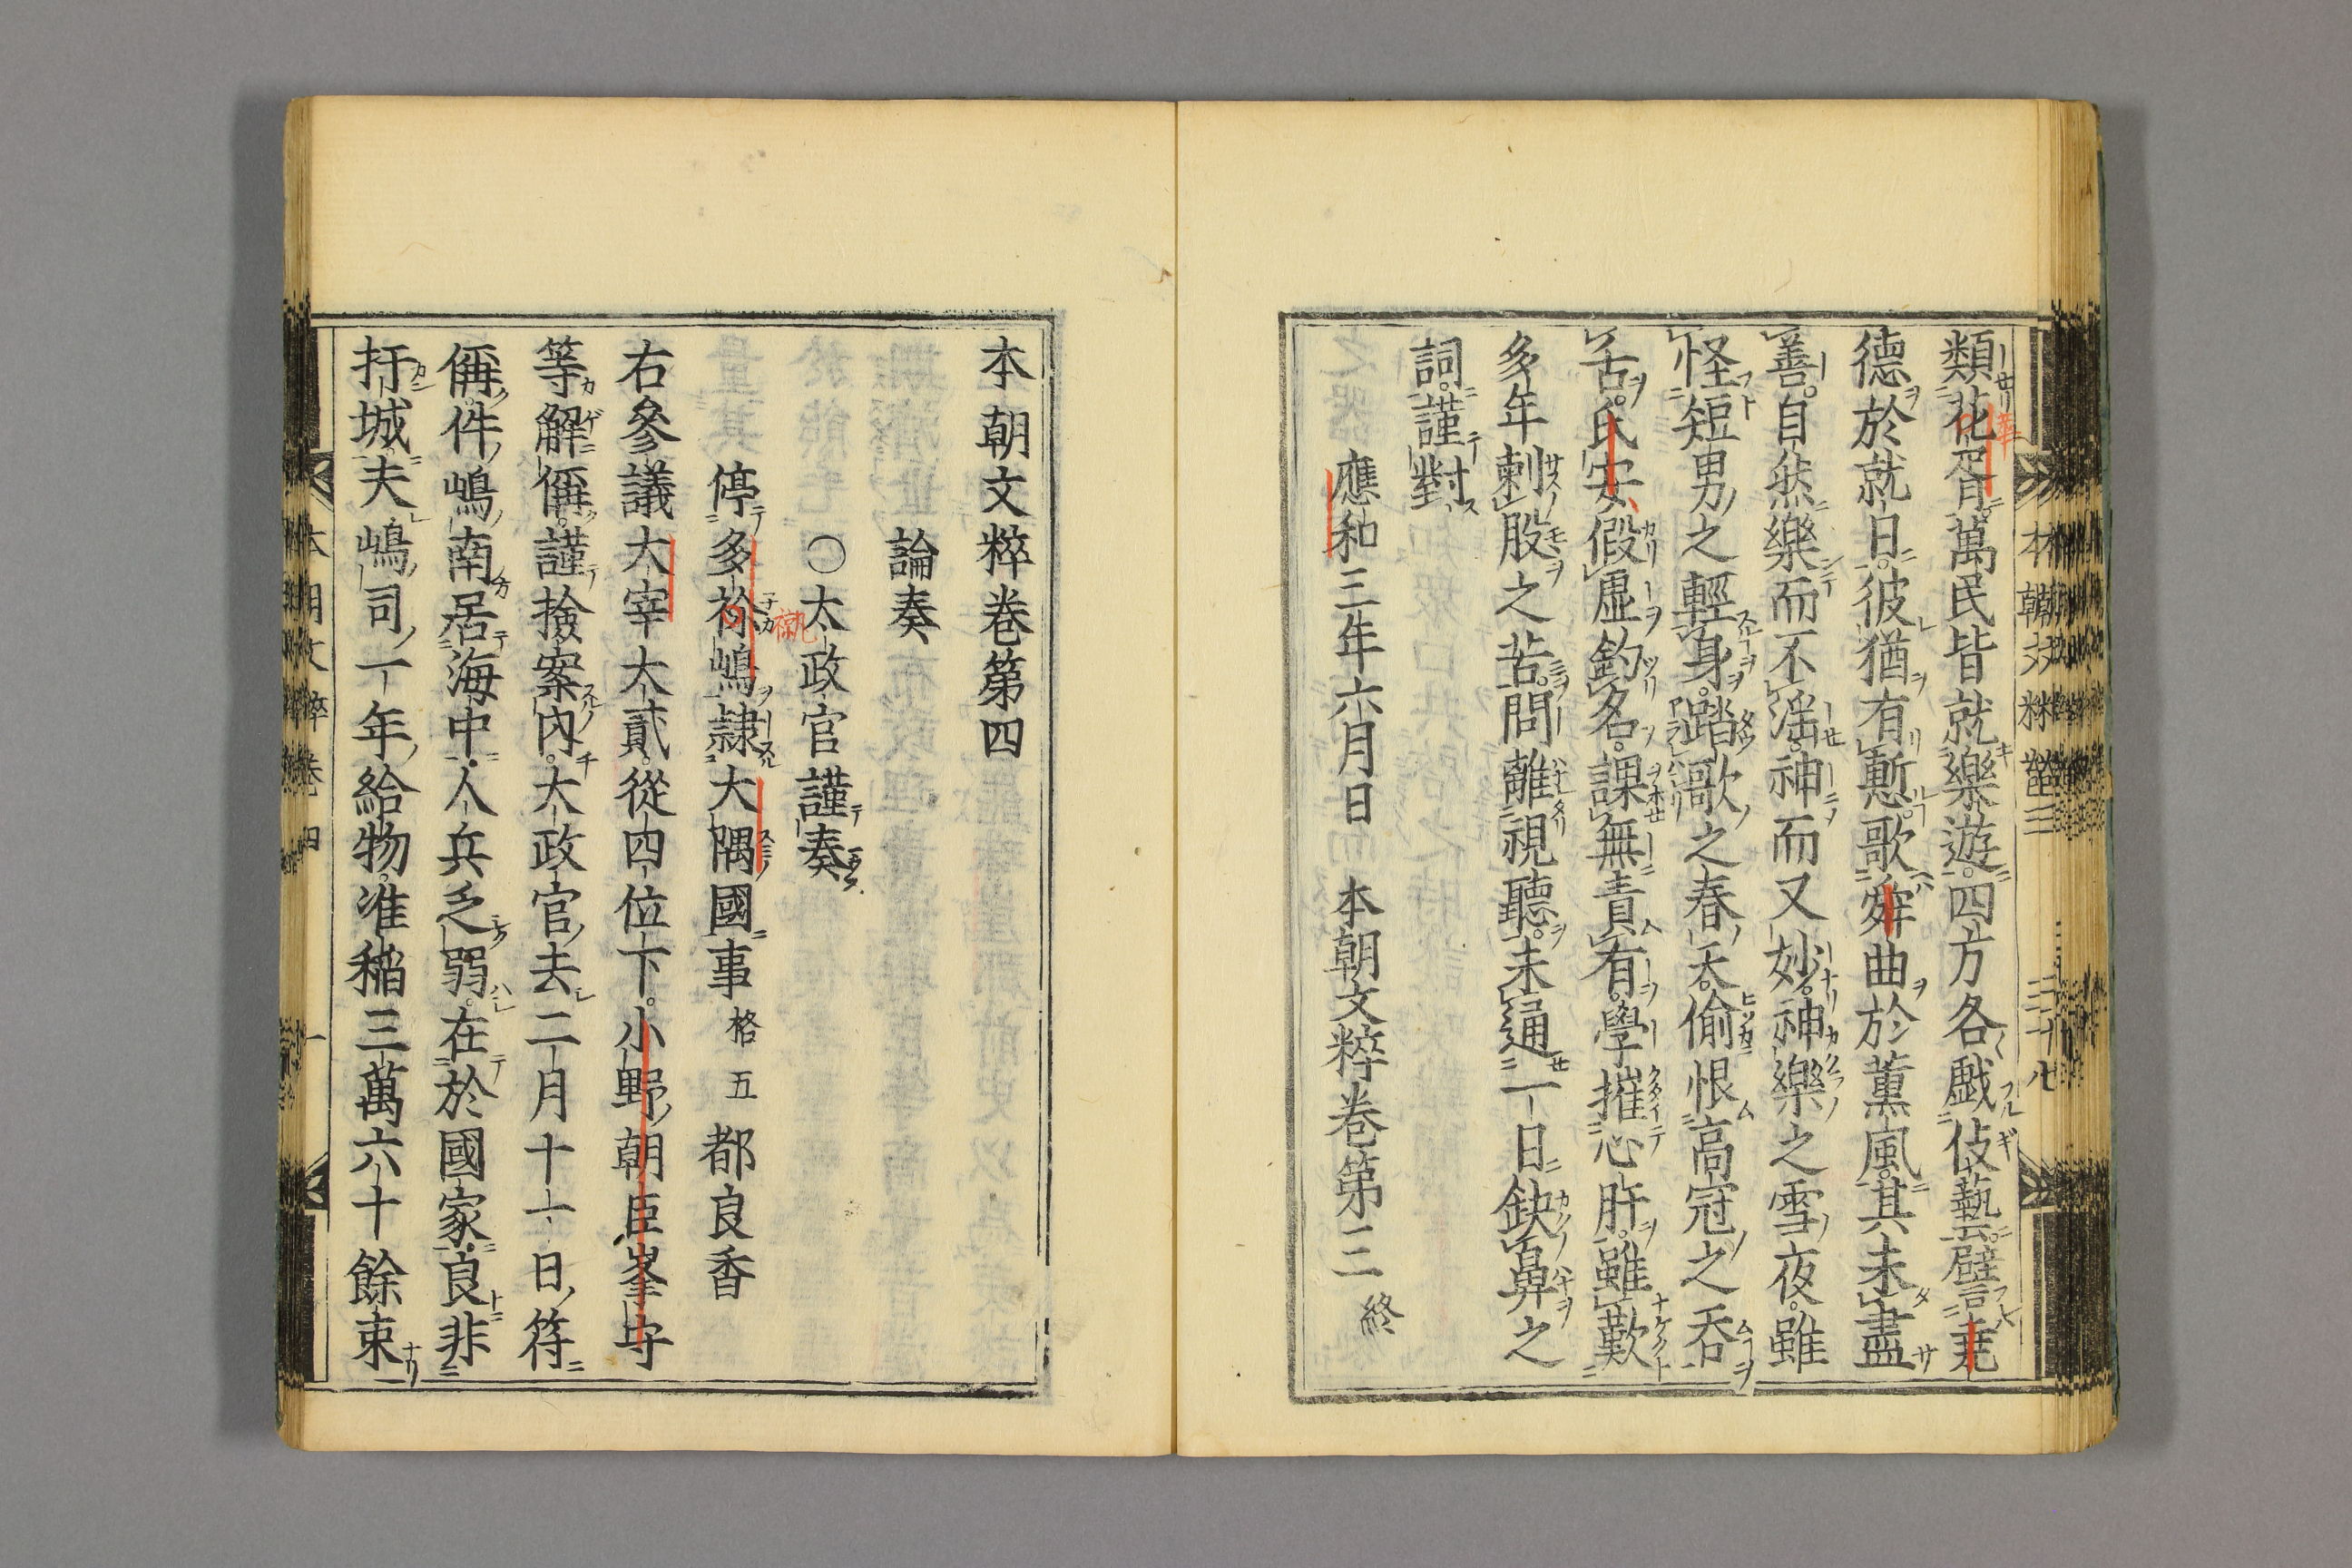 類花胥萬民皆就樂遊四方各戯伎藝譬堯
德於就日彼猶有慙歌舜曲於薫風其未盡
善自然樂而不淫神而又妙神樂之雪夜雖
怪短男之輕身踏歌之春天偷恨高冠之吞
舌氏安假虛釣名課無責有學摧心肝雖歎
多年刺股之苦問離視聽未通一日缺鼻之
詞謹對
應和三年六月日 本朝文粹卷第三 終
本朝文粹卷第四
論奏
〇太政官謹奏
停多褹嶋隷大隅國事 格五 都良香
右參議大宰大貳從四位下小野朝臣峯守
等解偁謹撿案內太政官去二月十一日符
偁件嶋南居海中人兵乏弱在於國家良非
扞城夫嶋司一年給物准稲三萬六十餘束